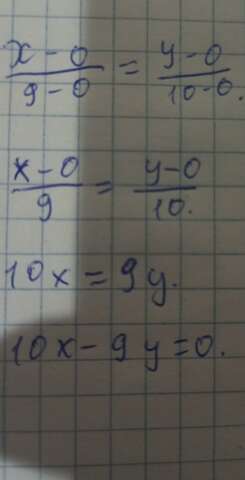 x - 0 / 9 - 0 = y - 0 / 10 - 0.
x - 0 / 9 = y - 0 / 10.
10x = 9y.
10x - 9y = 0.